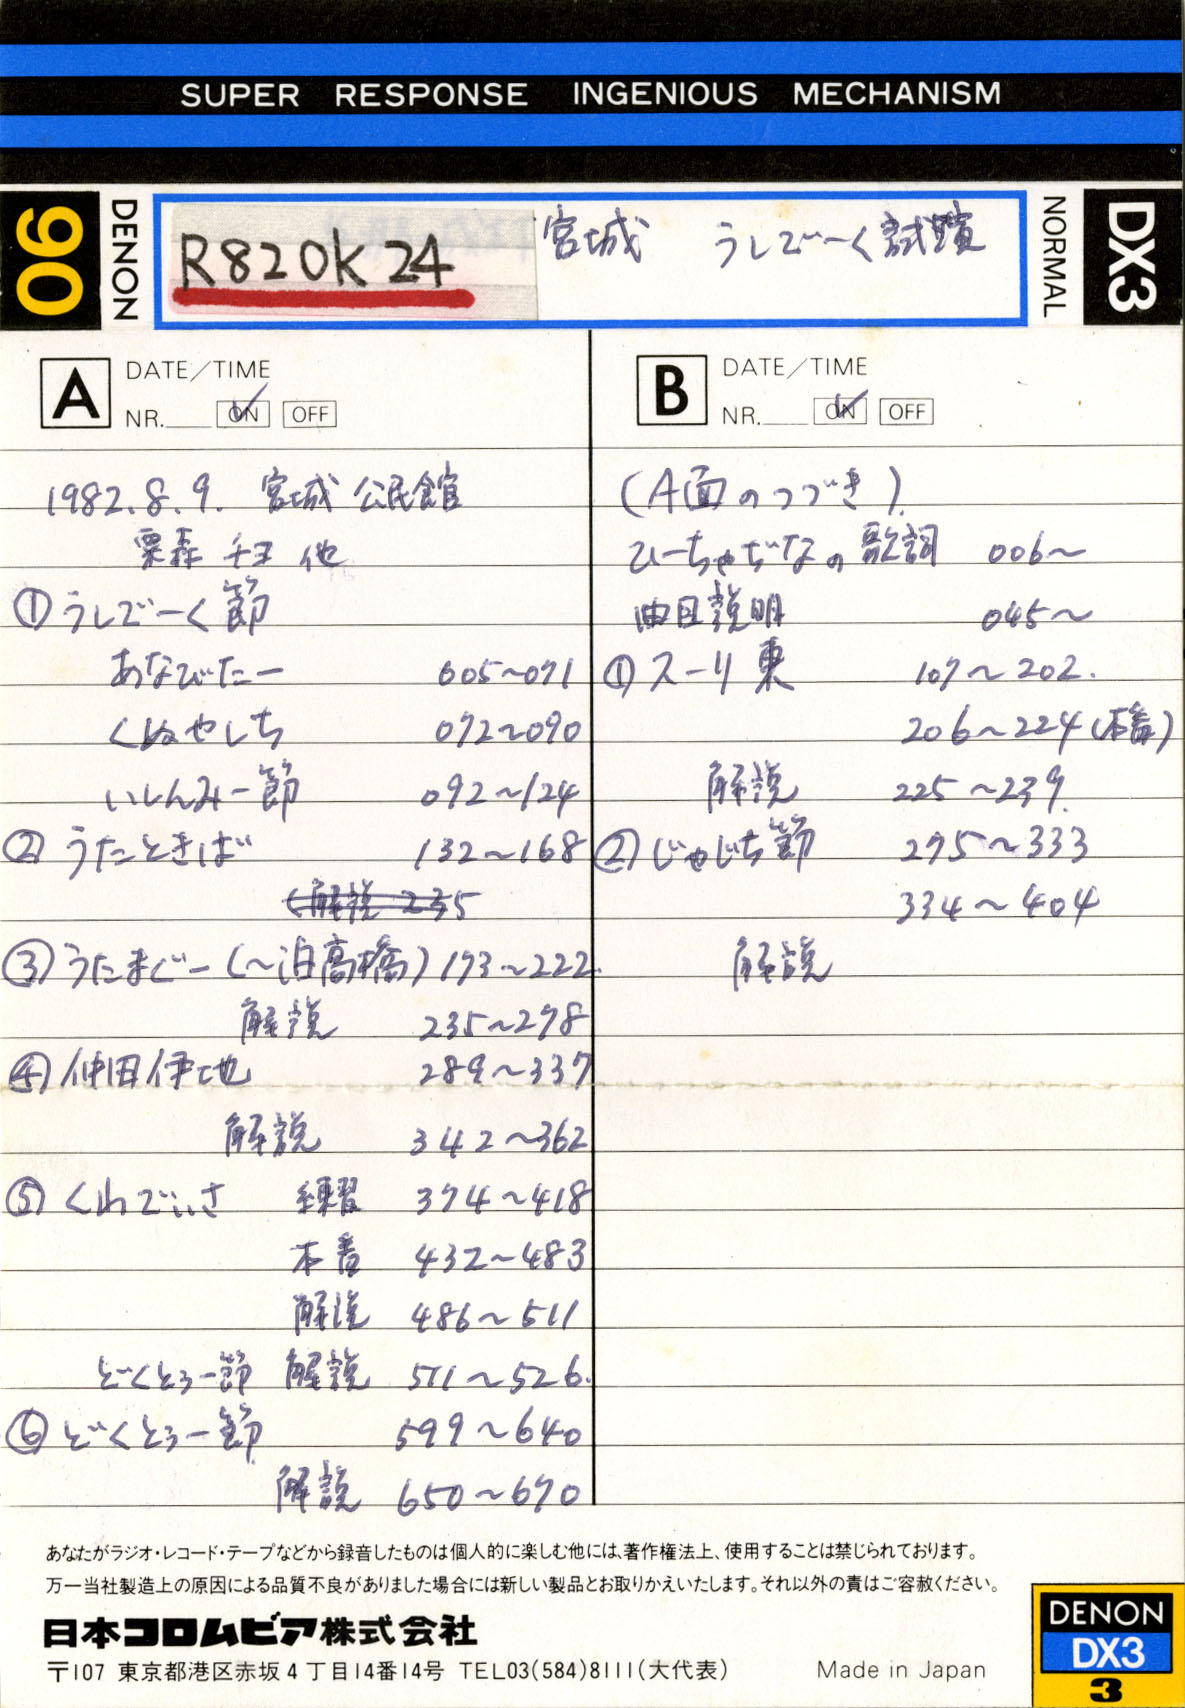 SUPER RESPONSE INGENIOUS MECHANISM
90
DENON
R820K24
宮城 うしでーく試演
NORMAL
DX3
A DATE/TIME
NR. ON OFF
1982.8.9. 宮城 公民館
栗森 チヨ 他
①うしでーく節
あなびたー 005〜071
くぬやしち 072〜090
いしんみー節 092〜124
②うたときば 132〜168
(解説 235
③うたまぐー(〜泊高橋) 173〜222.
解説 235〜278
④仲田伊地 289〜337
解説 342〜362
⑤くわでぃさ 練習 374〜418
本番 432〜483
解説 486〜511
どくとぅー節 解説 511〜526.
⑥どくとぅー節 599〜640
解説 650〜670
B DATE/TIME
NR. ON OFF
(A面のつづき)
ひーちゃぢなの歌詞 006〜
曲目説明 045〜
①スーリ東 107〜202.
206〜224(本番)
解説 225〜239.
②じゃじち節 275〜333
334〜404
解説
あなたがラジオ・レコード・テープなどから録音したものは個人的に楽しむ他には、著作権法上、使用することは禁じられております。
万一当社製造上の原因による品質不良がありました場合には新しい製品とお取りかえいたします。それ以外の責はご容赦ください。
日本コロムビア株式会社
〒107 東京都港区赤坂4丁目14番14号 TEL03(584)8111(大代表) Made in Japan
DENON
DX3
3